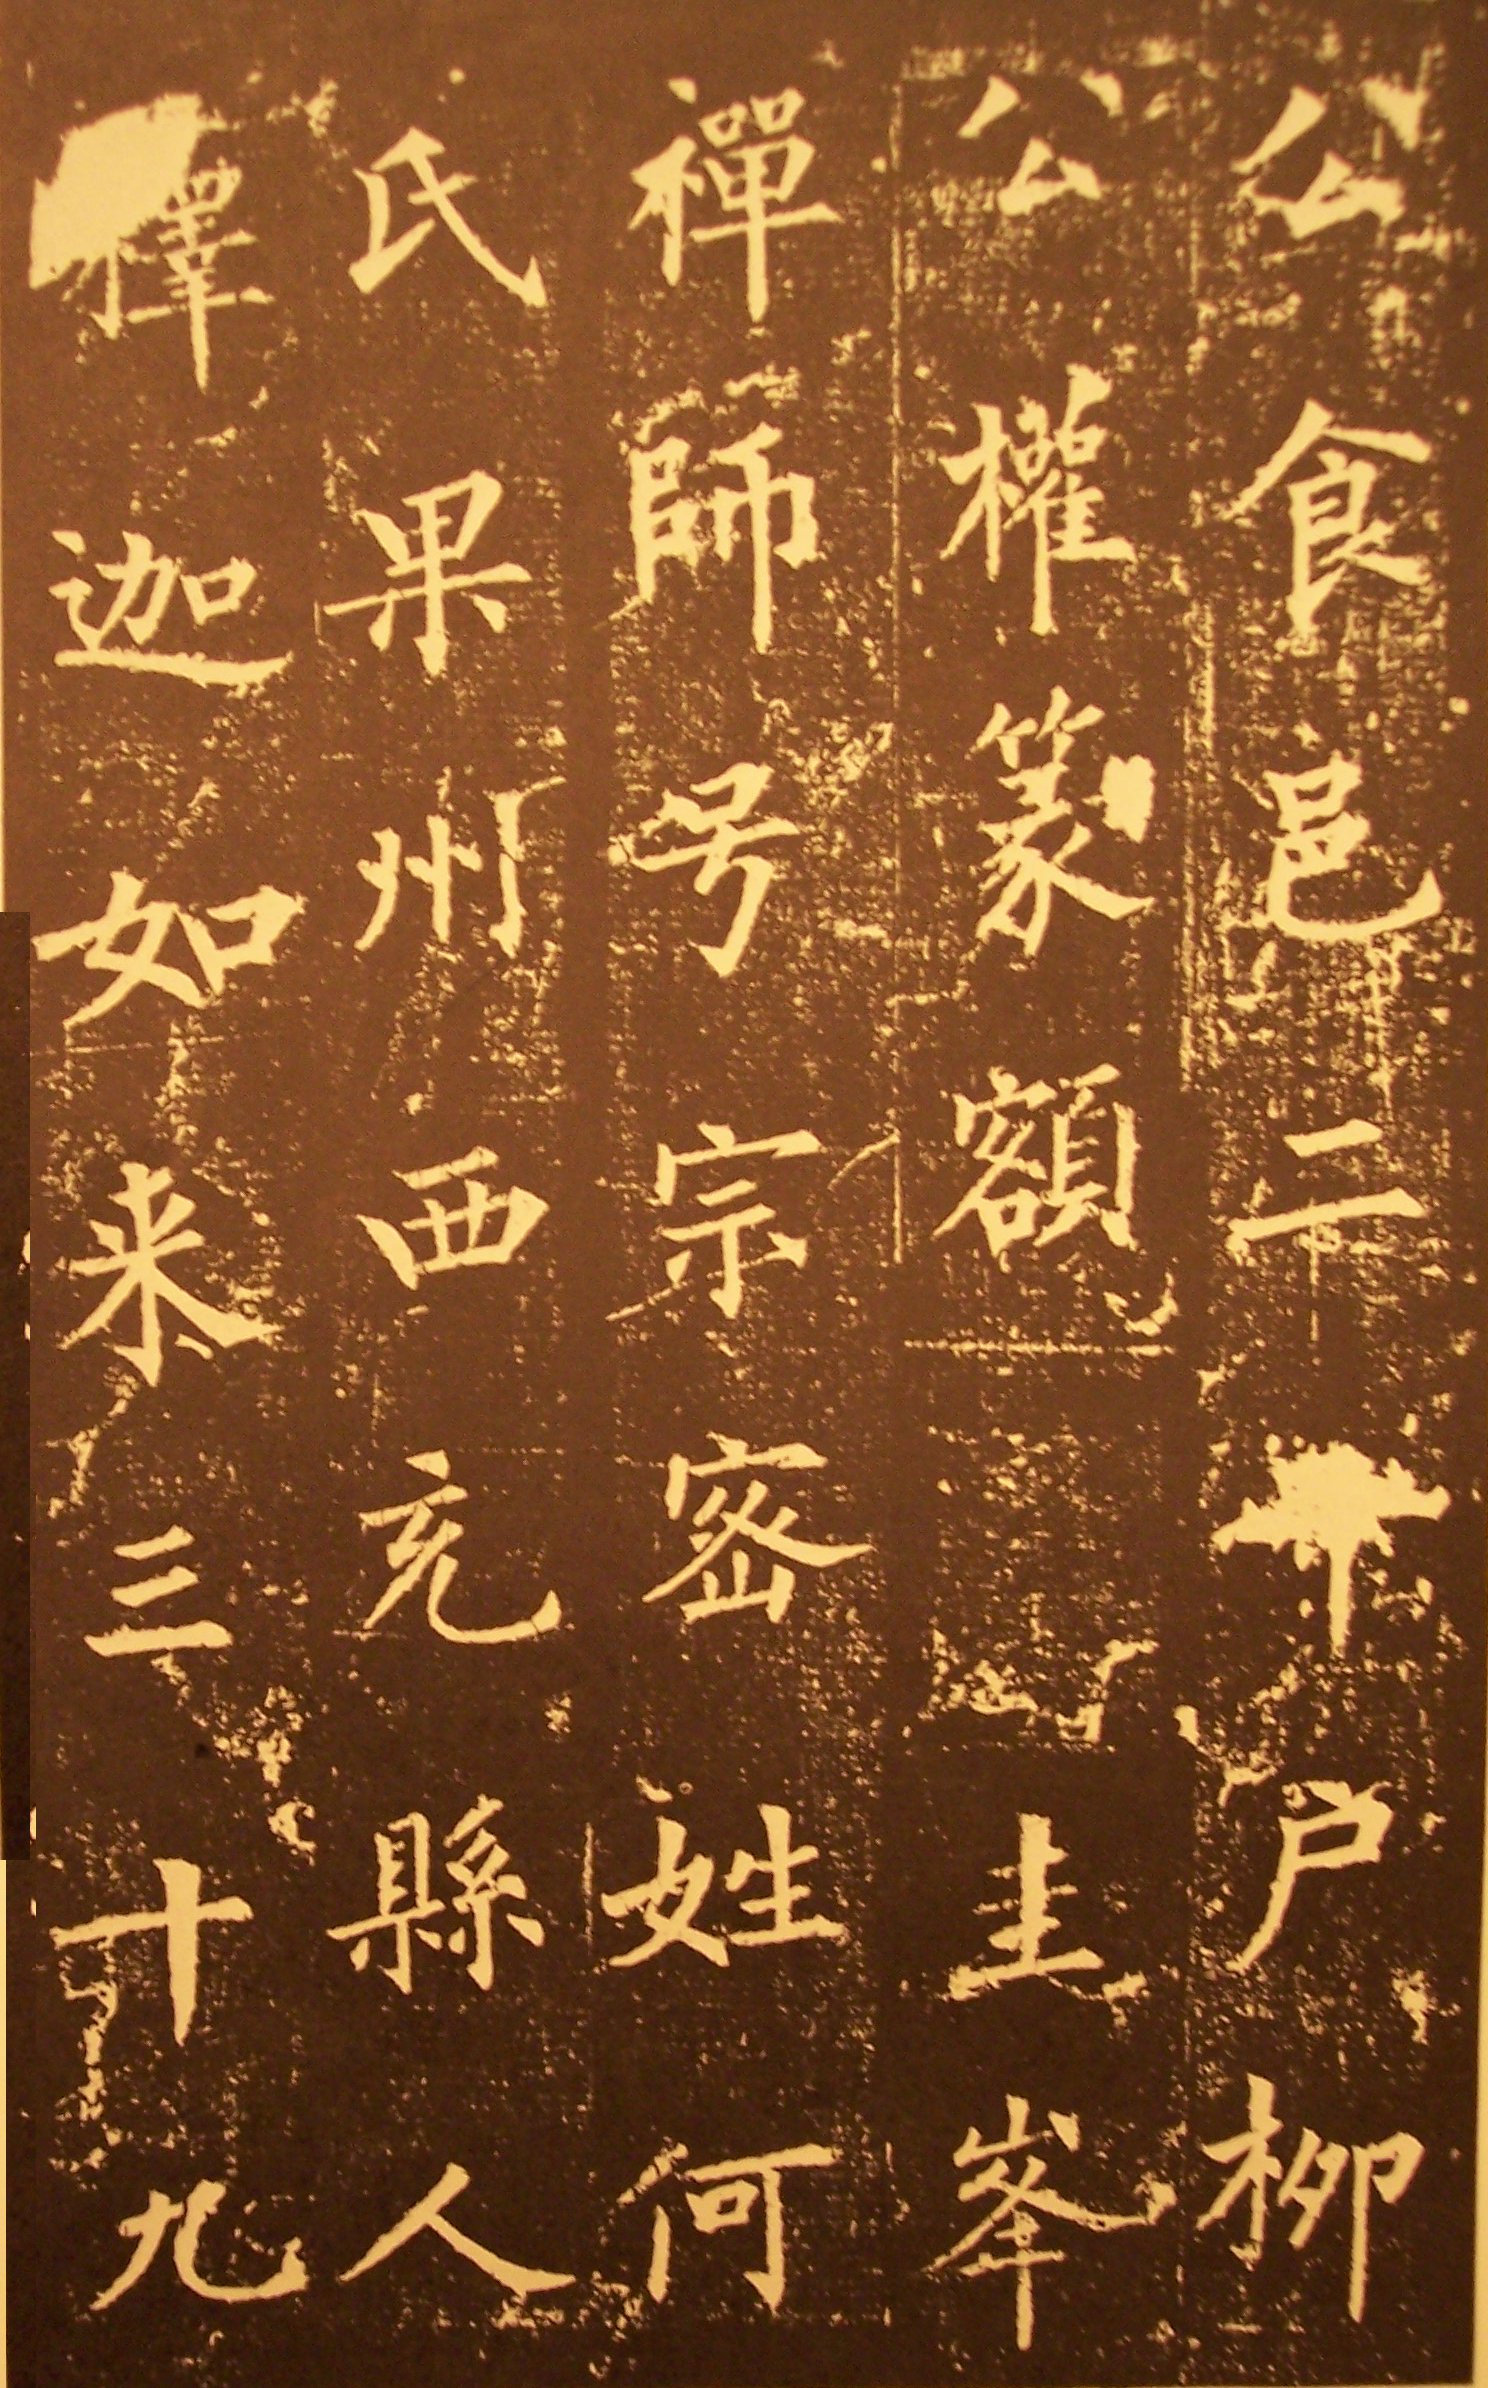 公食邑三千户柳
公權篆額圭峯
禪師号宗密姓何
氏果州西充縣人
釋迦如来三十九